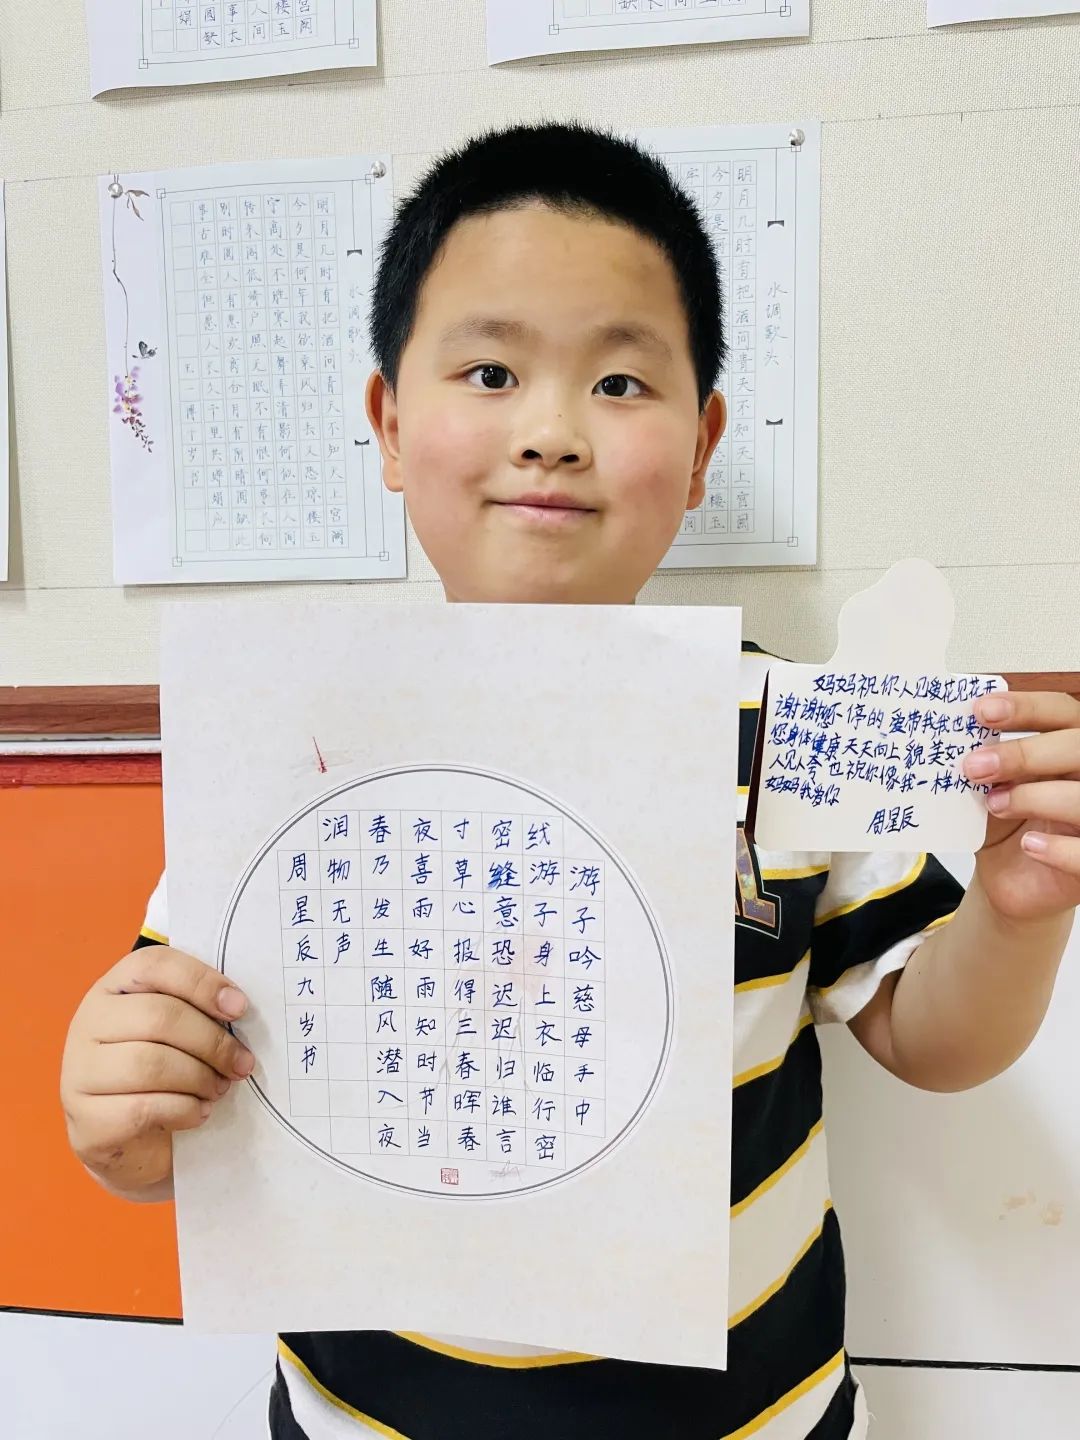 水调歌头
明月几时有把酒问青天不知天上宫阙
今夕是何年我欲乘风归去又恐琼楼玉
宇高处不胜寒起舞弄清影何似在人间
转朱阁低绮户照无眠不有恨何事长向
别时圆人有悲欢离合月有阴晴圆缺此
事古难全但愿人长久千里共婵娟
水调歌头
明月几时有把酒问青天不知天上宫阙
今夕是
游子吟慈母手中
线游子身上衣临行密
密缝意恐迟迟归谁言
寸草心报得三春晖春
夜喜雨好雨知时节当
春乃发生随风潜入夜
润物无声
周星辰九岁书
妈妈祝你人见爱花见花开
谢谢您不停的爱带我我也要祝
您身体健康天天向上貌美如花
人见人夸也祝你像我一样快
妈妈我爱你
周星辰